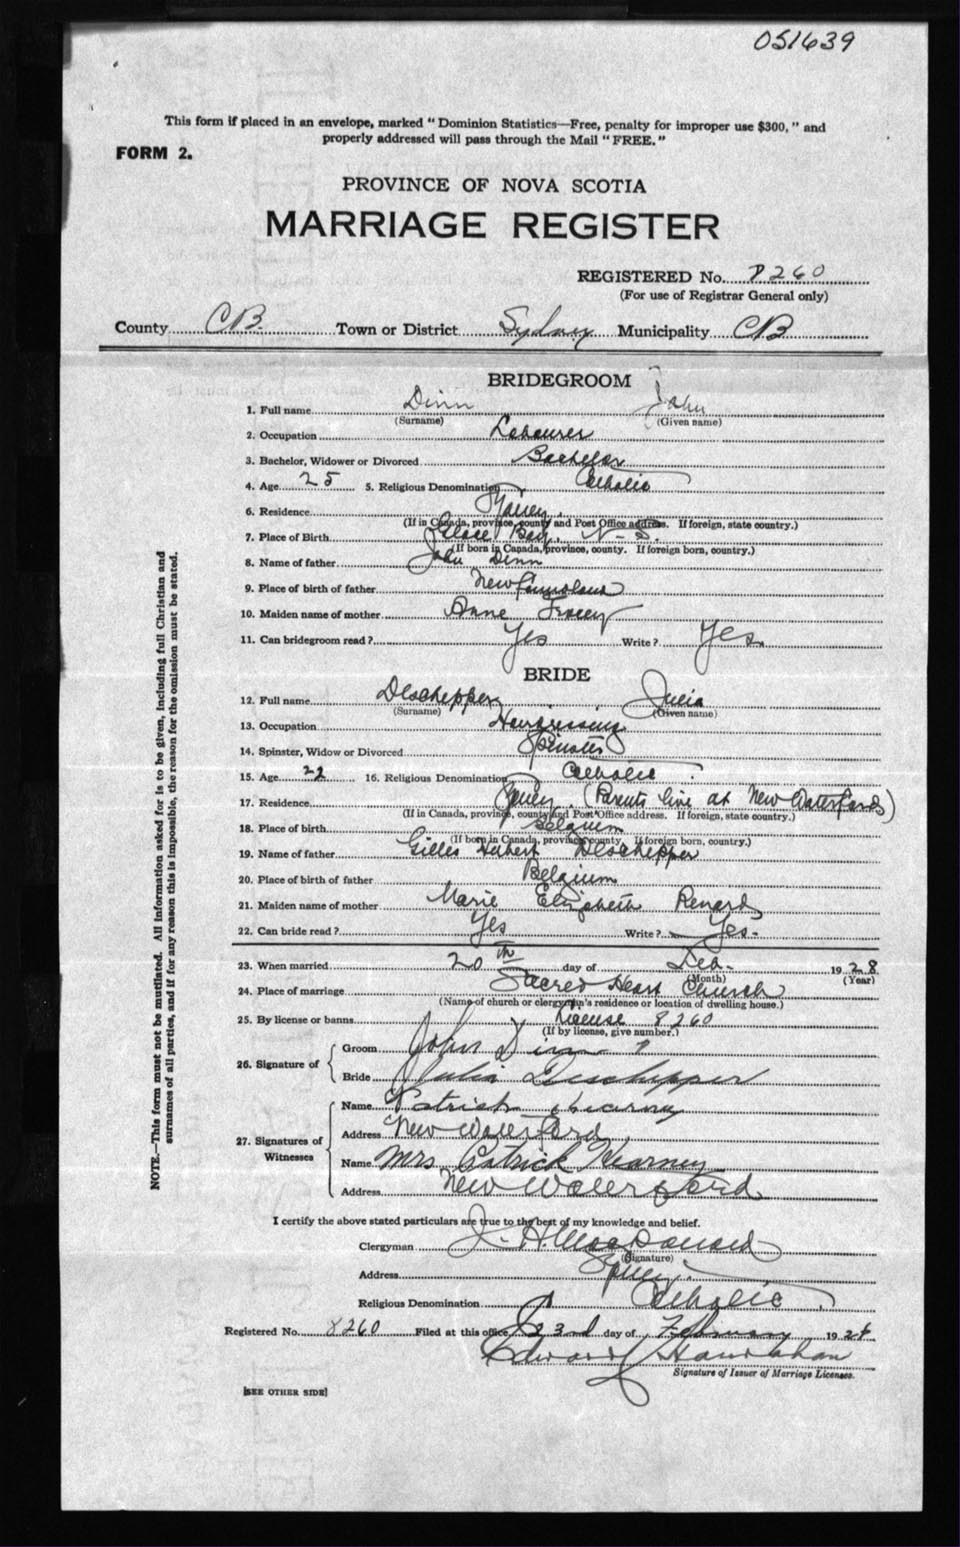 051639
This form if placed in an envelope, marked "Dominion Statistics—Free, penalty for improper use $300," and
properly addressed will pass through the Mail "FREE."
FORM 2.
PROVINCE OF NOVA SCOTIA
MARRIAGE REGISTER
REGISTERED No. 8260
(For use of Registrar General only)
County C.B. Town or District Sydney Municipality CB
BRIDEGROOM
1. Full name Dinn John
(Surname) (Given name)
2. Occupation Labourer
3. Bachelor, Widower or Divorced Bachelor
4. Age 25 5. Religious Denomination Catholic
6. Residence Sydney.
(If in Canada, province, county and Post Office address. If foreign, state country.)
7. Place of Birth Glace Bay, N-S.
(If born in Canada, province, county. If foreign born, country.)
8. Name of father John Dinn
9. Place of birth of father Newfoundland
10. Maiden name of mother Anne Tracey
11. Can bridegroom read? Yes Write? Yes.
BRIDE
12. Full name Deschepper Julia
(Surname) (Given name)
13. Occupation Hairdressing
14. Spinster, Widow or Divorced Spinster
15. Age 22 16. Religious Denomination Catholic.
17. Residence Sydney. (Parents live at New Waterford)
(If in Canada, province, county and Post Office address. If foreign, state country.)
18. Place of birth Belgium
(If born in Canada, province, county. If foreign born, country.)
19. Name of father Gilles Hubert Deschepper
20. Place of birth of father Belgium
21. Maiden name of mother Marie Elizabeth Renard
22. Can bride read? Yes Write? Yes.
23. When married 20th day of Feb. 1928
(Month) (Year)
24. Place of marriage Sacred Heart Church
(Name of church or clergyman's residence or location of dwelling house.)
25. By license or banns License 8260
(If by license, give number.)
26. Signature of
Groom John Dinn
Bride Julia Deschepper
27. Signatures of Witnesses
Name Patrick Kearney
Address New Waterford
Name Mrs Patrick Kearney
Address New Waterford
I certify the above stated particulars are true to the best of my knowledge and belief.
Clergyman J. H. MacDonald
(Signature)
Address Sydney.
Religious Denomination Catholic.
Registered No. 8260 Filed at this office 23rd day of February 1928
Edward Hanrahan
Signature of Issuer of Marriage Licenses.
[SEE OTHER SIDE]
NOTE.—This form must not be mutilated. All information asked for is to be given, including full Christian and
surnames of all parties, and if for any reason this is impossible, the reason for the omission must be stated.